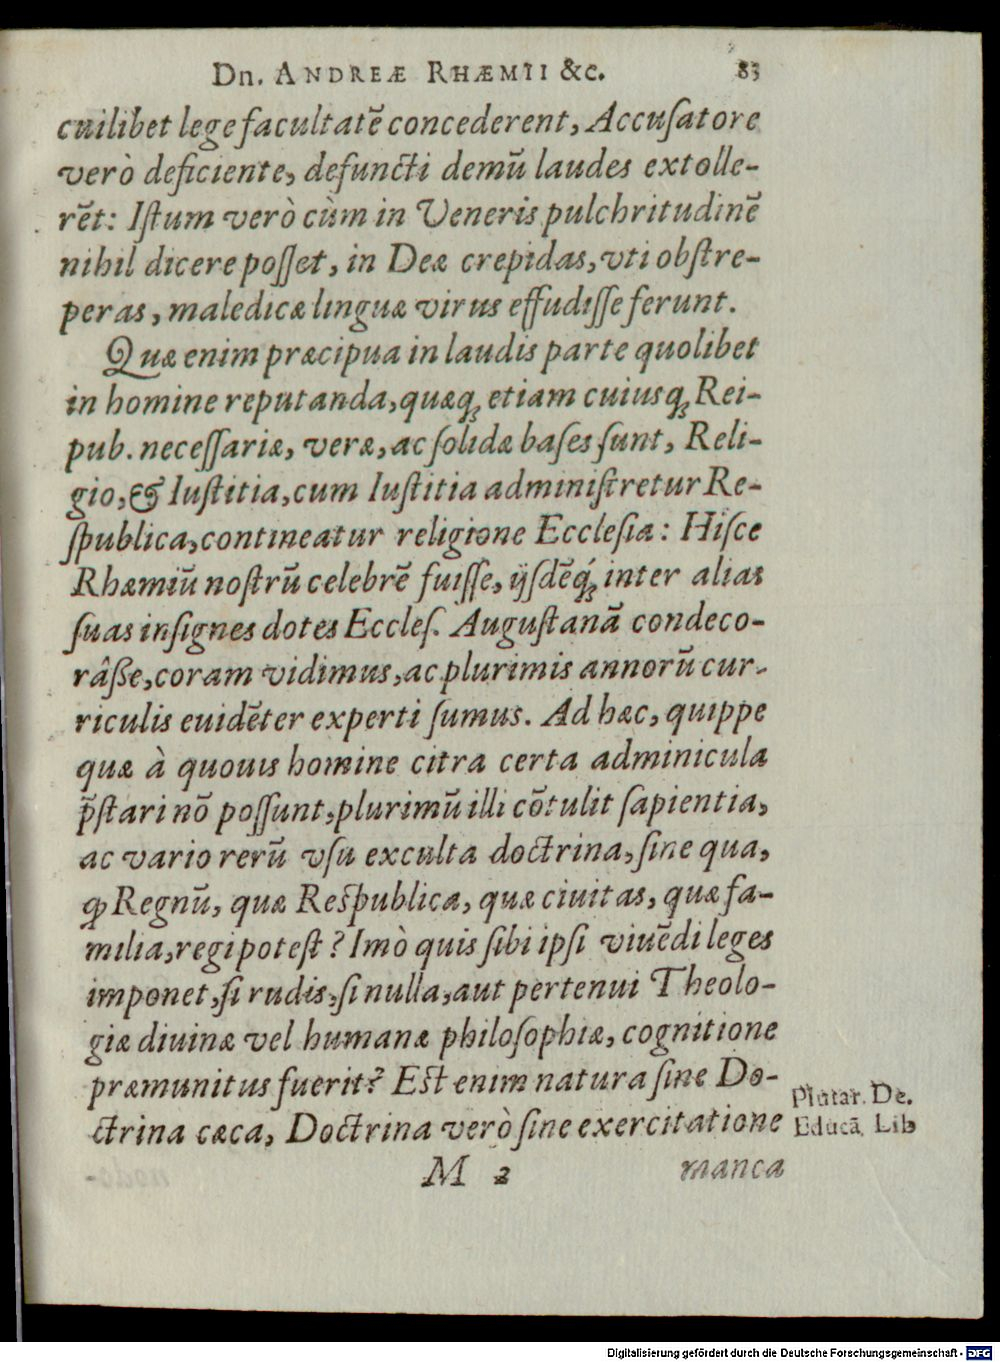 Dn. ANDREÆ RHÆMII &c. 83
cuilibet lege facultatẽ concederent, Accuſatore
verò deficiente, defuncti demũ laudes extolle-
rẽt: Iſtum verò cùm in Veneris pulchritudinẽ
nihil dicere poſſet, in Deæ crepidas, vti obſtre-
peras, maledicæ linguæ virus effudiſſe ferunt.
Quæ enim præcipua in laudis parte quolibet
in homine reputanda, quæq; etiam cuiusq; Rei-
pub. neceſſariæ, veræ, ac ſolidæ baſes ſunt, Reli-
gio, & Iuſtitia, cum Iuſtitia adminiſtretur Re-
ſpublica, contineatur religione Eccleſia: Hiſce
Rhæmiũ noſtrũ celebrẽ fuiſſe, ijſdẽq́; inter alias
ſuas inſignes dotes Eccleſ. Auguſtanã condeco-
râſſe, coram vidimus, ac plurimis annorũ cur-
riculis euidẽter experti ſumus. Ad hæc, quippe
quæ à quouis homine citra certa adminicula
p̃ſtari nõ poſſunt, plurimũ illi cõtulit ſapientia,
ac vario rerũ vſu exculta doctrina, ſine qua,
ꝙ Regnũ, quæ Reſpublica, quæ ciuitas, quæ fa-
milia, regi poteſt? Imò quis ſibi ipſi viuẽdi leges
imponet, ſi rudis, ſi nulla, aut pertenui Theolo-
giæ diuinæ vel humanæ philoſophiæ, cognitione
præmunitus fuerit? Eſt enim natura ſine Do-
ctrina cæca, Doctrina verò ſine exercitatione
Plutar. De.
Educã. Lib
M 2 manca
Digitalisierung gefördert durch die Deutsche Forschungsgemeinschaft - DFG